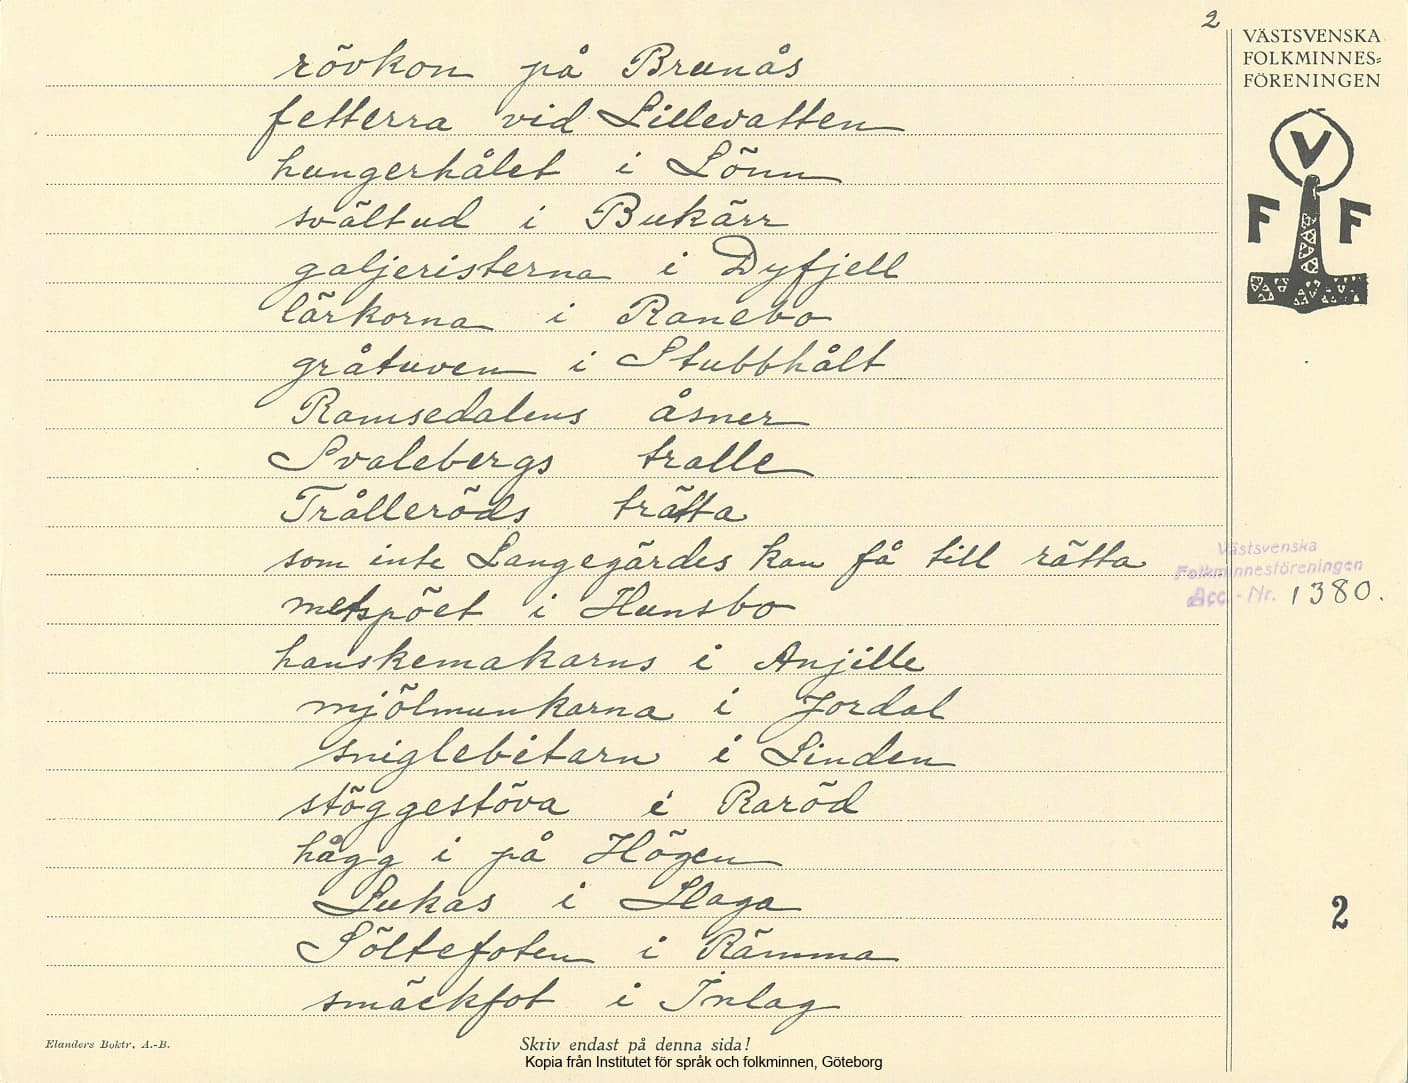 2
VÄSTSVENSKA
FOLKMINNES=
FÖRENINGEN
V
F F
rövkon på Brunås
fetterra vid Lillevatten
hungerhålet i Lönn
svältud i Bukärr
galjeristerna i Dyfjell
lärkorna i Ranebo
gråtuven i Stubbhålt
Ramsedalens åsner
Svalebergs tralle
Trålleröds trätta
som inte Langegärdes kan få till rätta
metspöet i Hunsbo
hanskemakarns i Anjille
mjölmunkarna i Jordal
sniglebitarn i Linden
stöggestöva i Raröd
hågg i på Högen
Lukas i Haga
Söltefoten i Rämma
smäckfot i Inlag
Västsvenska
Folkminnesföreningen
Acc. - Nr. 1380.
2
Elanders Boktr. A.-B.
Skriv endast på denna sida!
Kopia från Institutet för språk och folkminnen, Göteborg